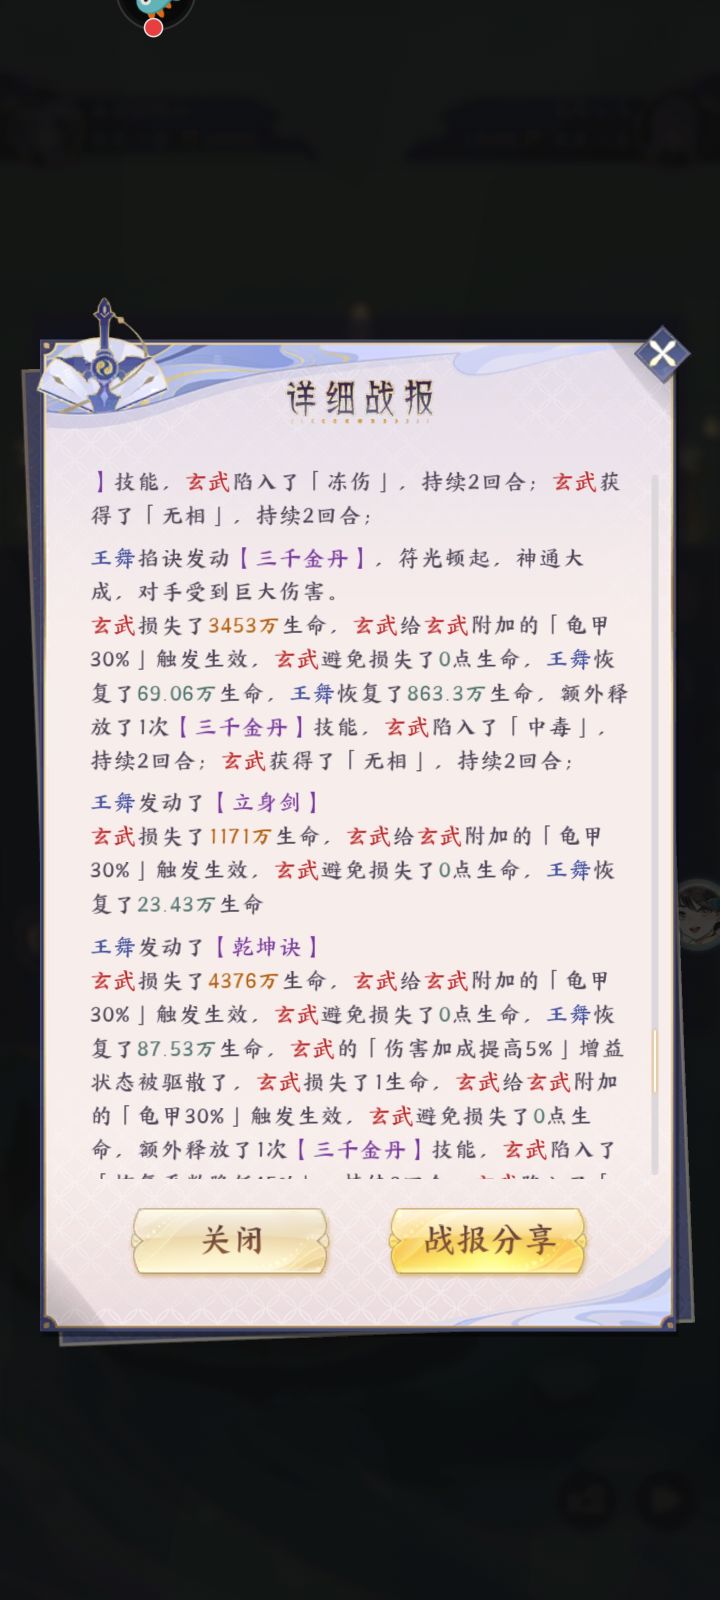 详细战报
】技能，玄武陷入了「冻伤」，持续2回合；玄武获
得了「无相」，持续2回合；
王舞掐诀发动【三千金丹】，符光顿起，神通大
成，对手受到巨大伤害。
玄武损失了3453万生命，玄武给玄武附加的「龟甲
30%」触发生效，玄武避免损失了0点生命，王舞恢
复了69.06万生命，王舞恢复了863.3万生命，额外释
放了1次【三千金丹】技能，玄武陷入了「中毒」，
持续2回合；玄武获得了「无相」，持续2回合；
王舞发动了【立身剑】
玄武损失了1171万生命，玄武给玄武附加的「龟甲
30%」触发生效，玄武避免损失了0点生命，王舞恢
复了23.43万生命
王舞发动了【乾坤诀】
玄武损失了4376万生命，玄武给玄武附加的「龟甲
30%」触发生效，玄武避免损失了0点生命，王舞恢
复了87.53万生命，玄武的「伤害加成提高5%」增益
状态被驱散了，玄武损失了1生命，玄武给玄武附加
的「龟甲30%」触发生效，玄武避免损失了0点生
命，额外释放了1次【三千金丹】技能，玄武陷入了
关闭
战报分享